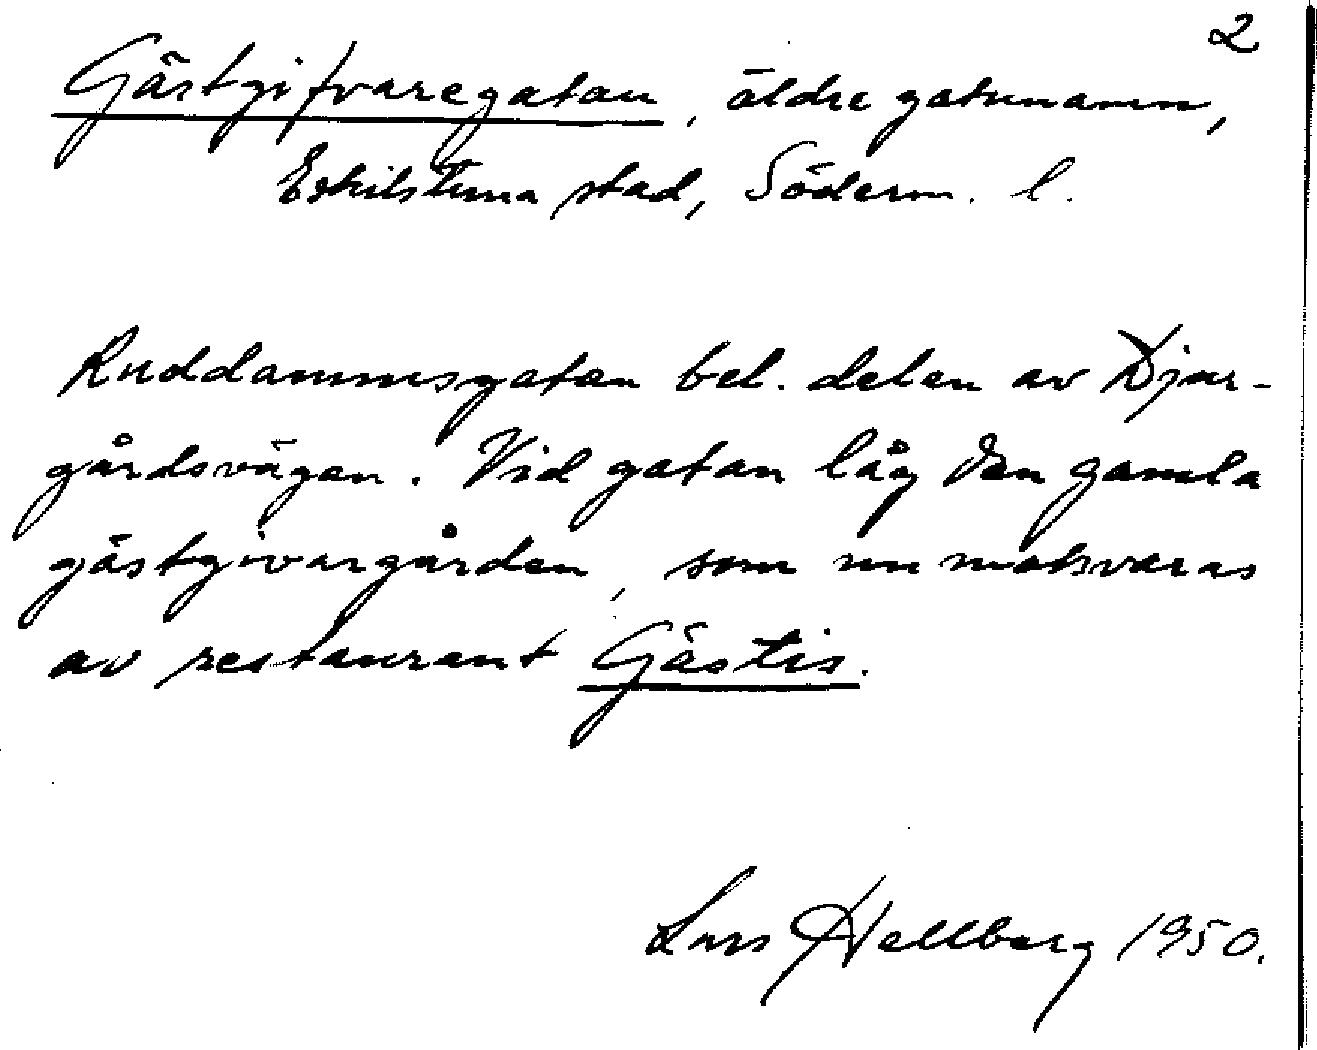 2
Gästgifvaregatan, äldre gatunamn,
Eskilstuna stad, Söderm. l.
Ruddammsgatan bel. delen av Djur-
gårdsvägen. Vid gatan låg den gamla
gästgivargården, som nu motsvaras
av restaurant Gästis.
Lars Hellberg 1950.